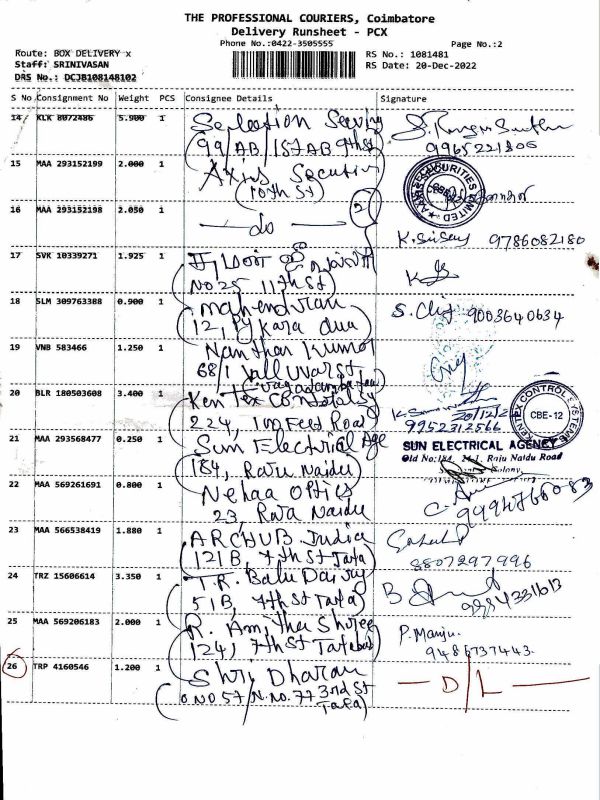 THE PROFESSIONAL COURIERS, Coimbatore
Delivery Runsheet - PCX
Phone No.:0422-3505555
Page No.:2
Route: BOX DELIVERY x
Staff: SRINIVASAN
DRS No.: DCJB108148102
RS No.: 1081481
RS Date: 20-Dec-2022
S No Consignment No Weight PCS Consignee Details Signature
14 KLK 8072486 5.900 1
99/AB/15TAB 9th St
9965221306
15 MAA 293152199 2.000 1 Axis Securities
(10th St)
16 MAA 293152198 2.050 1 — do — 2
9786082180
17 SVK 10339271 1.925 1
No 25 11th St
18 SLM 309763388 0.900 1 Mahendran
9003640634
19 VNB 583466 1.250 1 Nanthar Kumar
68/1 Valluvar St
20 BLR 180503608 3.400 1 Kentex
224, 100 Feet Road
9952312566
CBE-12
21 MAA 293568477 0.250 1 Sun Electrical Age
184, Raju Naidu
SUN ELECTRICAL AGENCY
Raju Naidu Road
Colony,
22 MAA 569261691 0.800 1 Nehaa Optics
23, Raja Naidu
23 MAA 566538419 1.880 1 ARCHUB India
121B, 7th St Tata
8807297996
24 TRZ 15606614 3.350 1 T.R. Balu
51B, 7th St Tata
25 MAA 569206183 2.000 1 R. Amitha Shree
124, 7th St Tatabad
P. Manju.
9486737443.
26 TRP 4160546 1.200 1 Shri Dharan
O.NO 57/N.No.77 3rd St
Tata
— D/L —